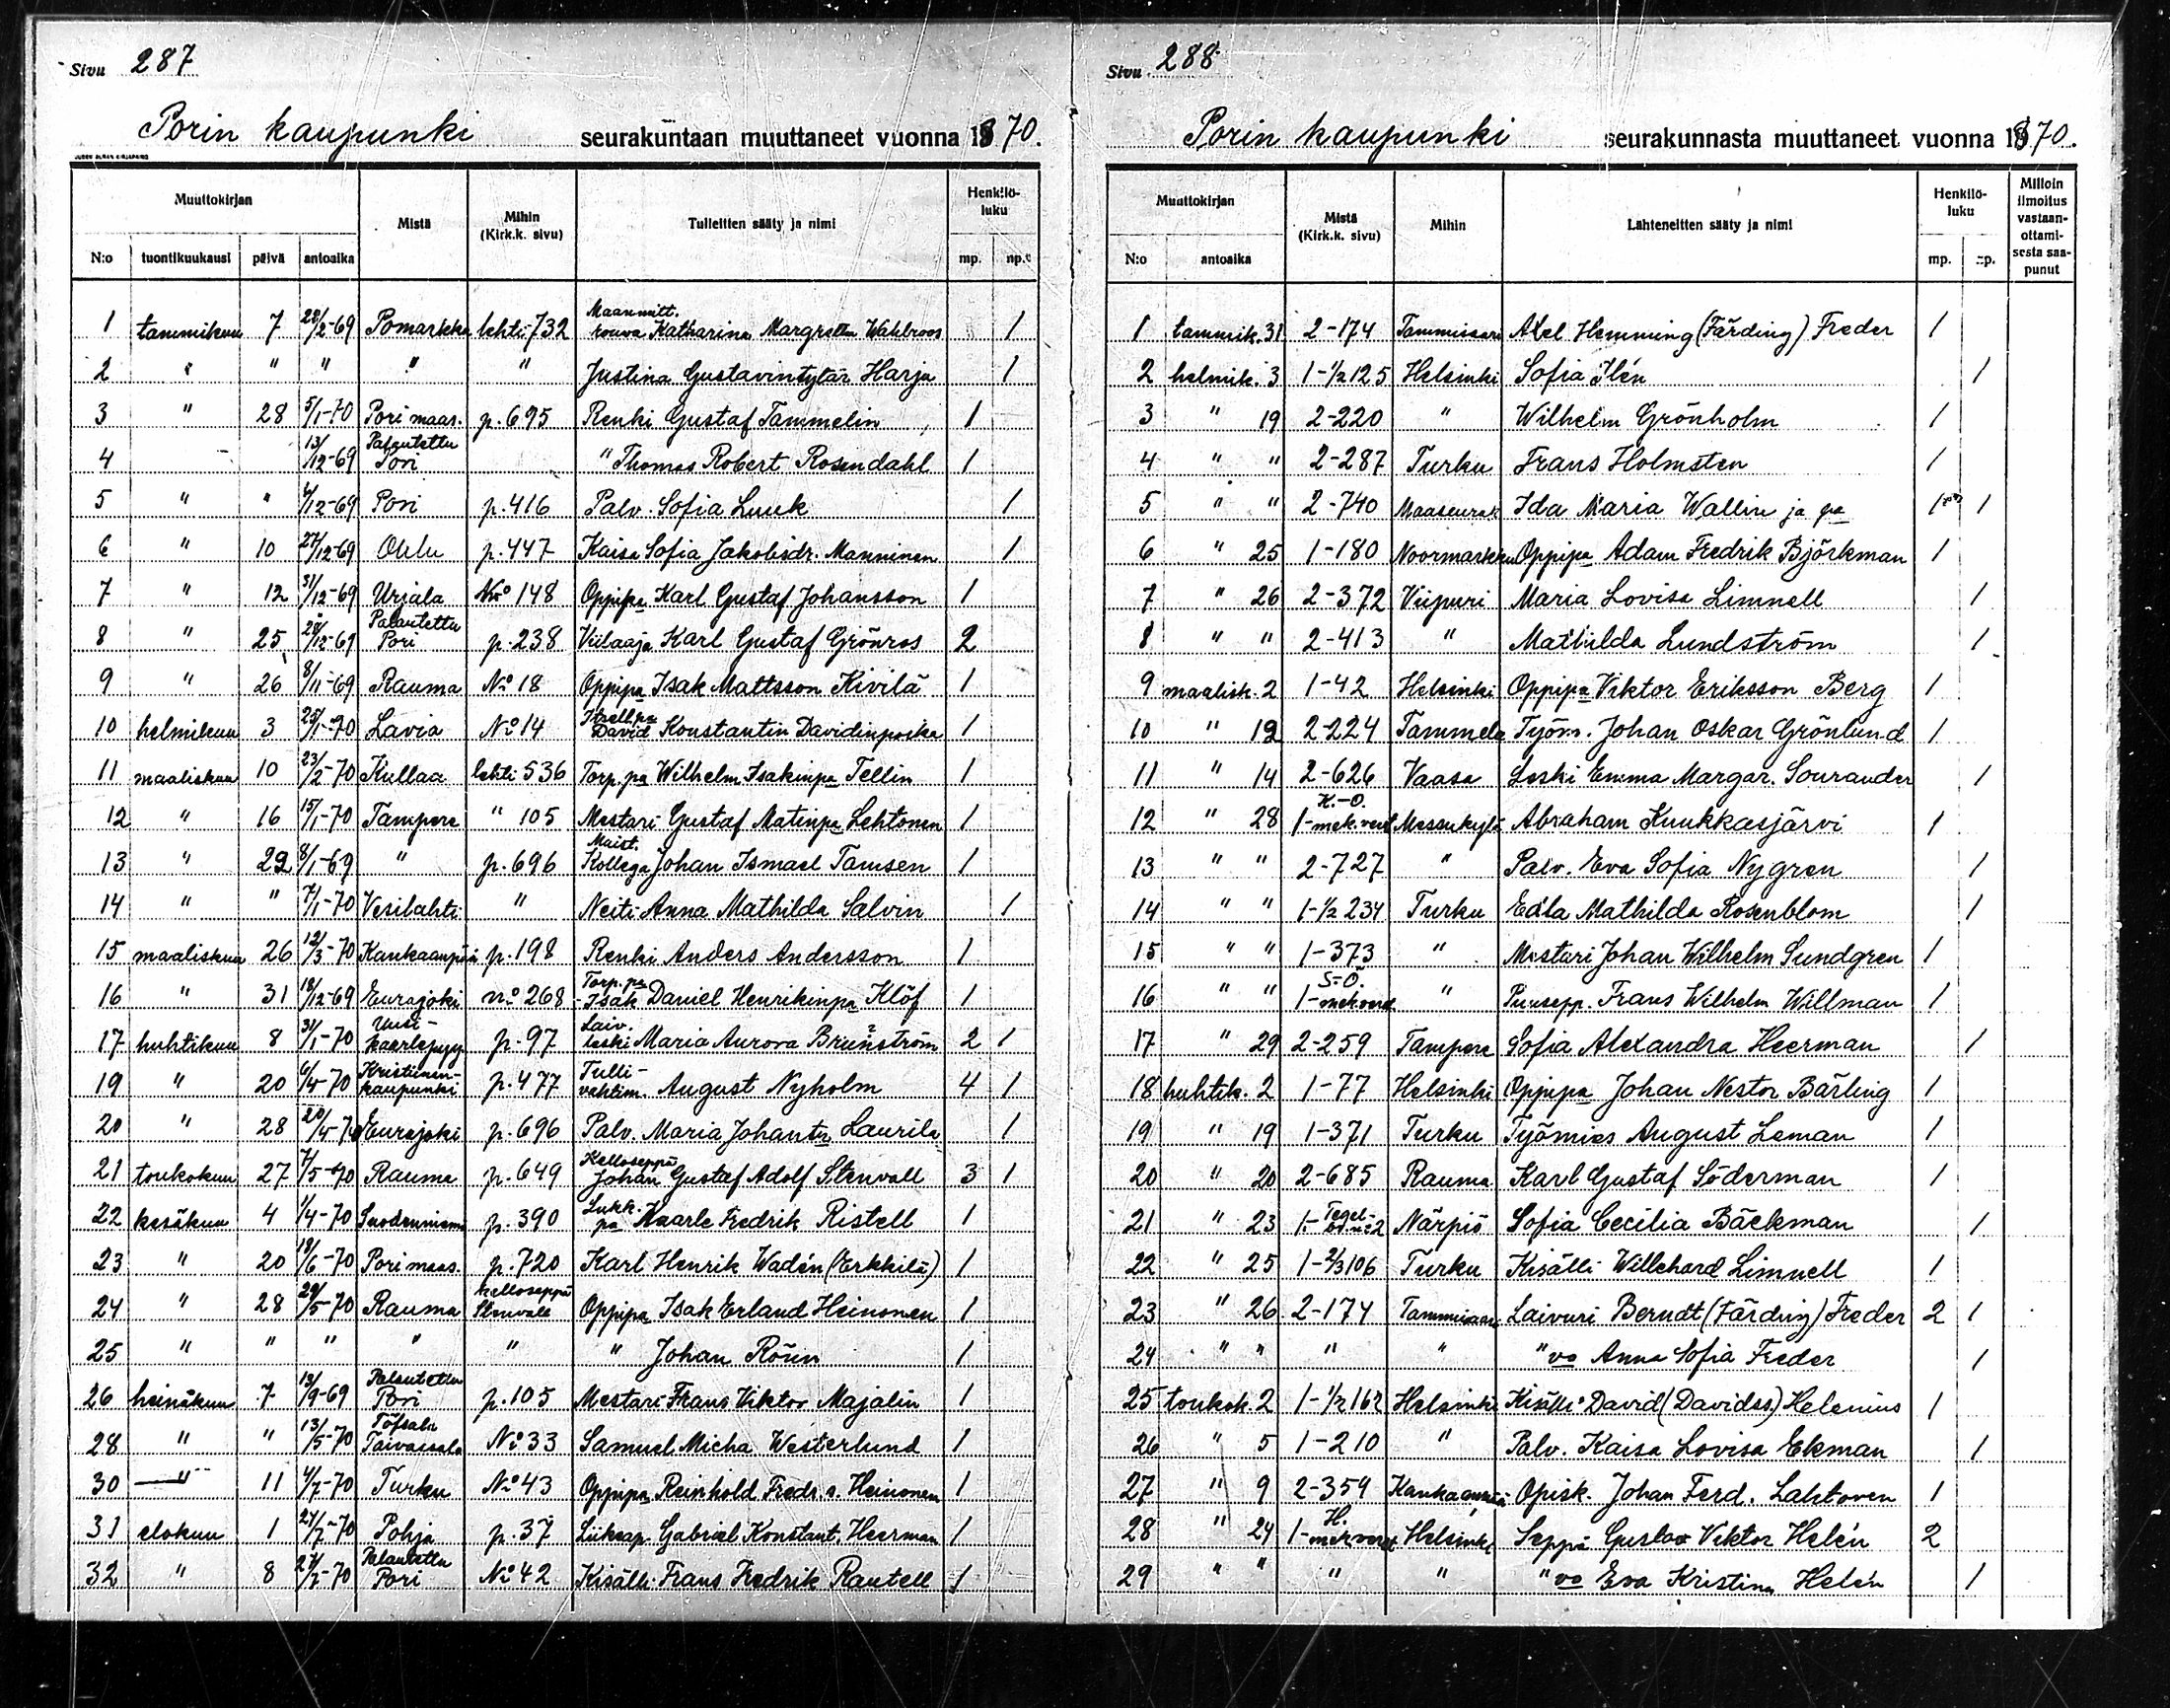 Sivu 287
Porin kaupunki seurakuntaan muuttaneet vuonna 1870.
Muuttokirjan Mistä Mihin (Kirk.k. sivu) Tulleitten sääty ja nimi Henkilö-luku
N:o tuontikuukausi päivä antoaika mp. np.
1 tammikuu 7 28/2-69 Pomarkku lehti 732 Maanmitt. rouva Katharina Margretta Wahlroos 1
2 " " " " " Justina Gustavintytär Harju 1
3 " 28 5/1-70 Pori maas. p. 695 Renki Gustaf Tammelin 1
4 13/12-69 Palautettu Pori " Thomas Robert Rosendahl 1
5 " " 4/12-69 Pori p. 416 Palv. Sofia Luuk 1
6 " 10 27/12-69 Oulu p. 447 Kaisa Sofia Jakobsdr. Manninen 1
7 " 12 31/12-69 Urjala No 148 Oppipa Karl Gustaf Johansson 1
8 " 25 28/12-69 Palautettu Pori p. 238 Viilaaja Karl Gustaf Grönros 2
9 " 26 8/11-69 Rauma No 18 Oppipa Isak Mattsson Kivilä 1
10 helmikuu 3 25/1-70 Lavia No 14 Itsell.pa David Konstantin Davidinpoika 1
11 maaliskuu 10 23/2-70 Kullaa lehti 536 Torp. pa Wilhelm Isakinpa Tellin 1
12 " 16 15/1-70 Tampere " 105 Mestari Gustaf Matinpa Lehtonen 1
13 " 29 8/1-69 " p. 696 Maist. Kollega Johan Ismael Tamsen 1
14 " " 7/1-70 Vesilahti " Neiti Anna Mathilda Salvin 1
15 maaliskuu 26 12/3-70 Kankaanpää p. 198 Renki Anders Andersson 1
16 " 31 18/12-69 Eurajoki no 268 Torp. pa Isak Daniel Henrikinpa Klöf 1
17 huhtikuu 8 31/1-70 Uusi-kaarlepyy p. 97 Laiv. leski Maria Aurora Brunström 2 1
19 " 20 6/4-70 Kristiinan-kaupunki p. 477 Tulli-vahtim. August Nyholm 4 1
20 " 28 20/4-70 Eurajoki p. 696 Palv. Maria Johantr Laurila 1
21 toukokuu 27 7/5-70 Rauma p. 649 Kelloseppä Johan Gustaf Adolf Stenvall 3 1
22 kesäkuu 4 1/4-70 Suodenniemi p. 390 Lukk. pa Kaarle Fredrik Ristell 1
23 " 20 18/6-70 Pori maas. p. 720 Karl Henrik Wadén (Erkkilä) 1
24 " 28 29/5-70 Rauma Kelloseppä Stenvall Oppipa Isak Erland Heinonen 1
25 " " " " " " Johan Röun 1
26 heinäkuu 7 13/9-69 Palautettu Pori p. 105 Mestari Frans Viktor Majalin 1
28 " " 13/5-70 Töfsala Taivassalo No 33 Samuel Micha Westerlund 1
30 " 11 4/7-70 Turku No 43 Oppipa Reinhold Fredr. s. Heinonen 1
31 elokuu 1 27/7-70 Pohja p. 37 Liikeap. Gabriel Konstant. Heerman 1
32 " 8 27/7-70 Palautettu Pori No 42 Kisälli Frans Fredrik Rautell 1
Sivu 288
Porin kaupunki seurakunnasta muuttaneet vuonna 1870.
Muuttokirjan Mistä (Kirk.k. sivu) Mihin Lähteneitten sääty ja nimi Henkilö-luku Milloin ilmoitus vastaan-ottami-sesta saa-punut
N:o antoaika mp. np.
1 tammik. 31 2-174 Tammisaari Axel Hemming (Färding) Freder 1
2 helmik. 3 1-1/2 125 Helsinki Sofia Ilén 1
3 " 19 2-220 " Wilhelm Grönholm 1
4 " " 2-287 Turku Frans Holmsten 1
5 " " 2-740 Maaseurak Ida Maria Wallin ja pa 1 1
6 " 25 1-180 Noormarkku Oppipa Adam Fredrik Björkman 1
7 " 26 2-372 Viipuri Maria Lovisa Limnell 1
8 " " 2-413 " Mathilda Lundström 1
9 maalisk. 2 1-42 Helsinki Oppipa Viktor Eriksson Berg 1
10 " 12 2-224 Tammela Työm. Johan Oskar Grönlund 1
11 " 14 2-626 Vaasa Leski Emma Margar. Sourander 1
12 " 28 K.-O. 1-mek.verst Messukylä Abraham Kuukkasjärvi 1
13 " " 2-727 " Palv. Eva Sofia Nygren 1
14 " " 1-1/2 234 Turku Edla Mathilda Rosenblom 1
15 " " 1-373 " Mestari Johan Wilhelm Sundgren 1
16 " " S.-O. 1-mek.verst " Puusepp. Frans Wilhelm Willman 1
17 " 29 2-259 Tampere Sofia Alexandra Heerman 1
18 huhtik. 2 1-77 Helsinki Oppipa Johan Nestor Bärling 1
19 " 19 1-371 Turku Työmies August Leman 1
20 " 20 2-685 Rauma Karl Gustaf Söderman 1
21 " 23 Närpiö Sofia Cecilia Bäckman 1
22 " 25 1-2/3 106 Turku Kisälli Willehard Limnell 1
23 " 26 2-174 Tammisaari Laivuri Berndt (Färding) Freder 2 1
24 " " " " " vo Anna Sofia Freder 1
25 toukok. 2 1-1/2 162 Helsinki Kisälli David (Davidss.) Helenius 1
26 " 5 1-210 " Palv. Kaisa Lovisa Ekman 1
27 " 9 2-359 Kankaanpää Opisk. Johan Ferd. Lahtoven 1
28 " 24 H. 1-mek.verst Helsinki Seppä Gustav Viktor Helén 2
29 " " " " " vo Eva Kristina Helén 1